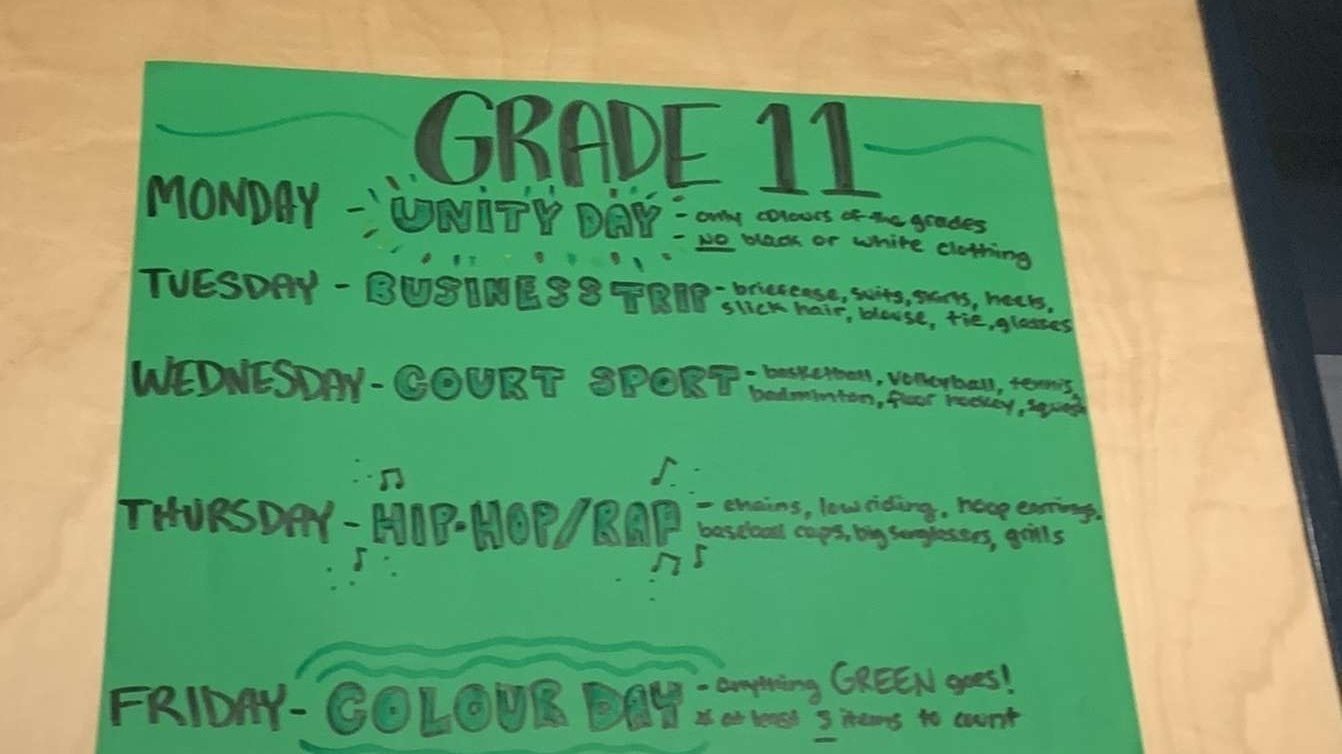 GRADE 11
MONDAY - UNITY DAY - only colours of the grades
- NO black or white clothing
TUESDAY - BUSINESS TRIP - briefcase, suits, skirts, heels,
slick hair, blouse, tie, glasses
WEDNESDAY - COURT SPORT - basketball, volleyball, tennis,
badminton, floor hockey, squash
THURSDAY - HIP-HOP/RAP - chains, low riding, hoop earrings,
baseball caps, big sunglasses, grills
FRIDAY - COLOUR DAY - anything GREEN goes!
* at least 3 items to count